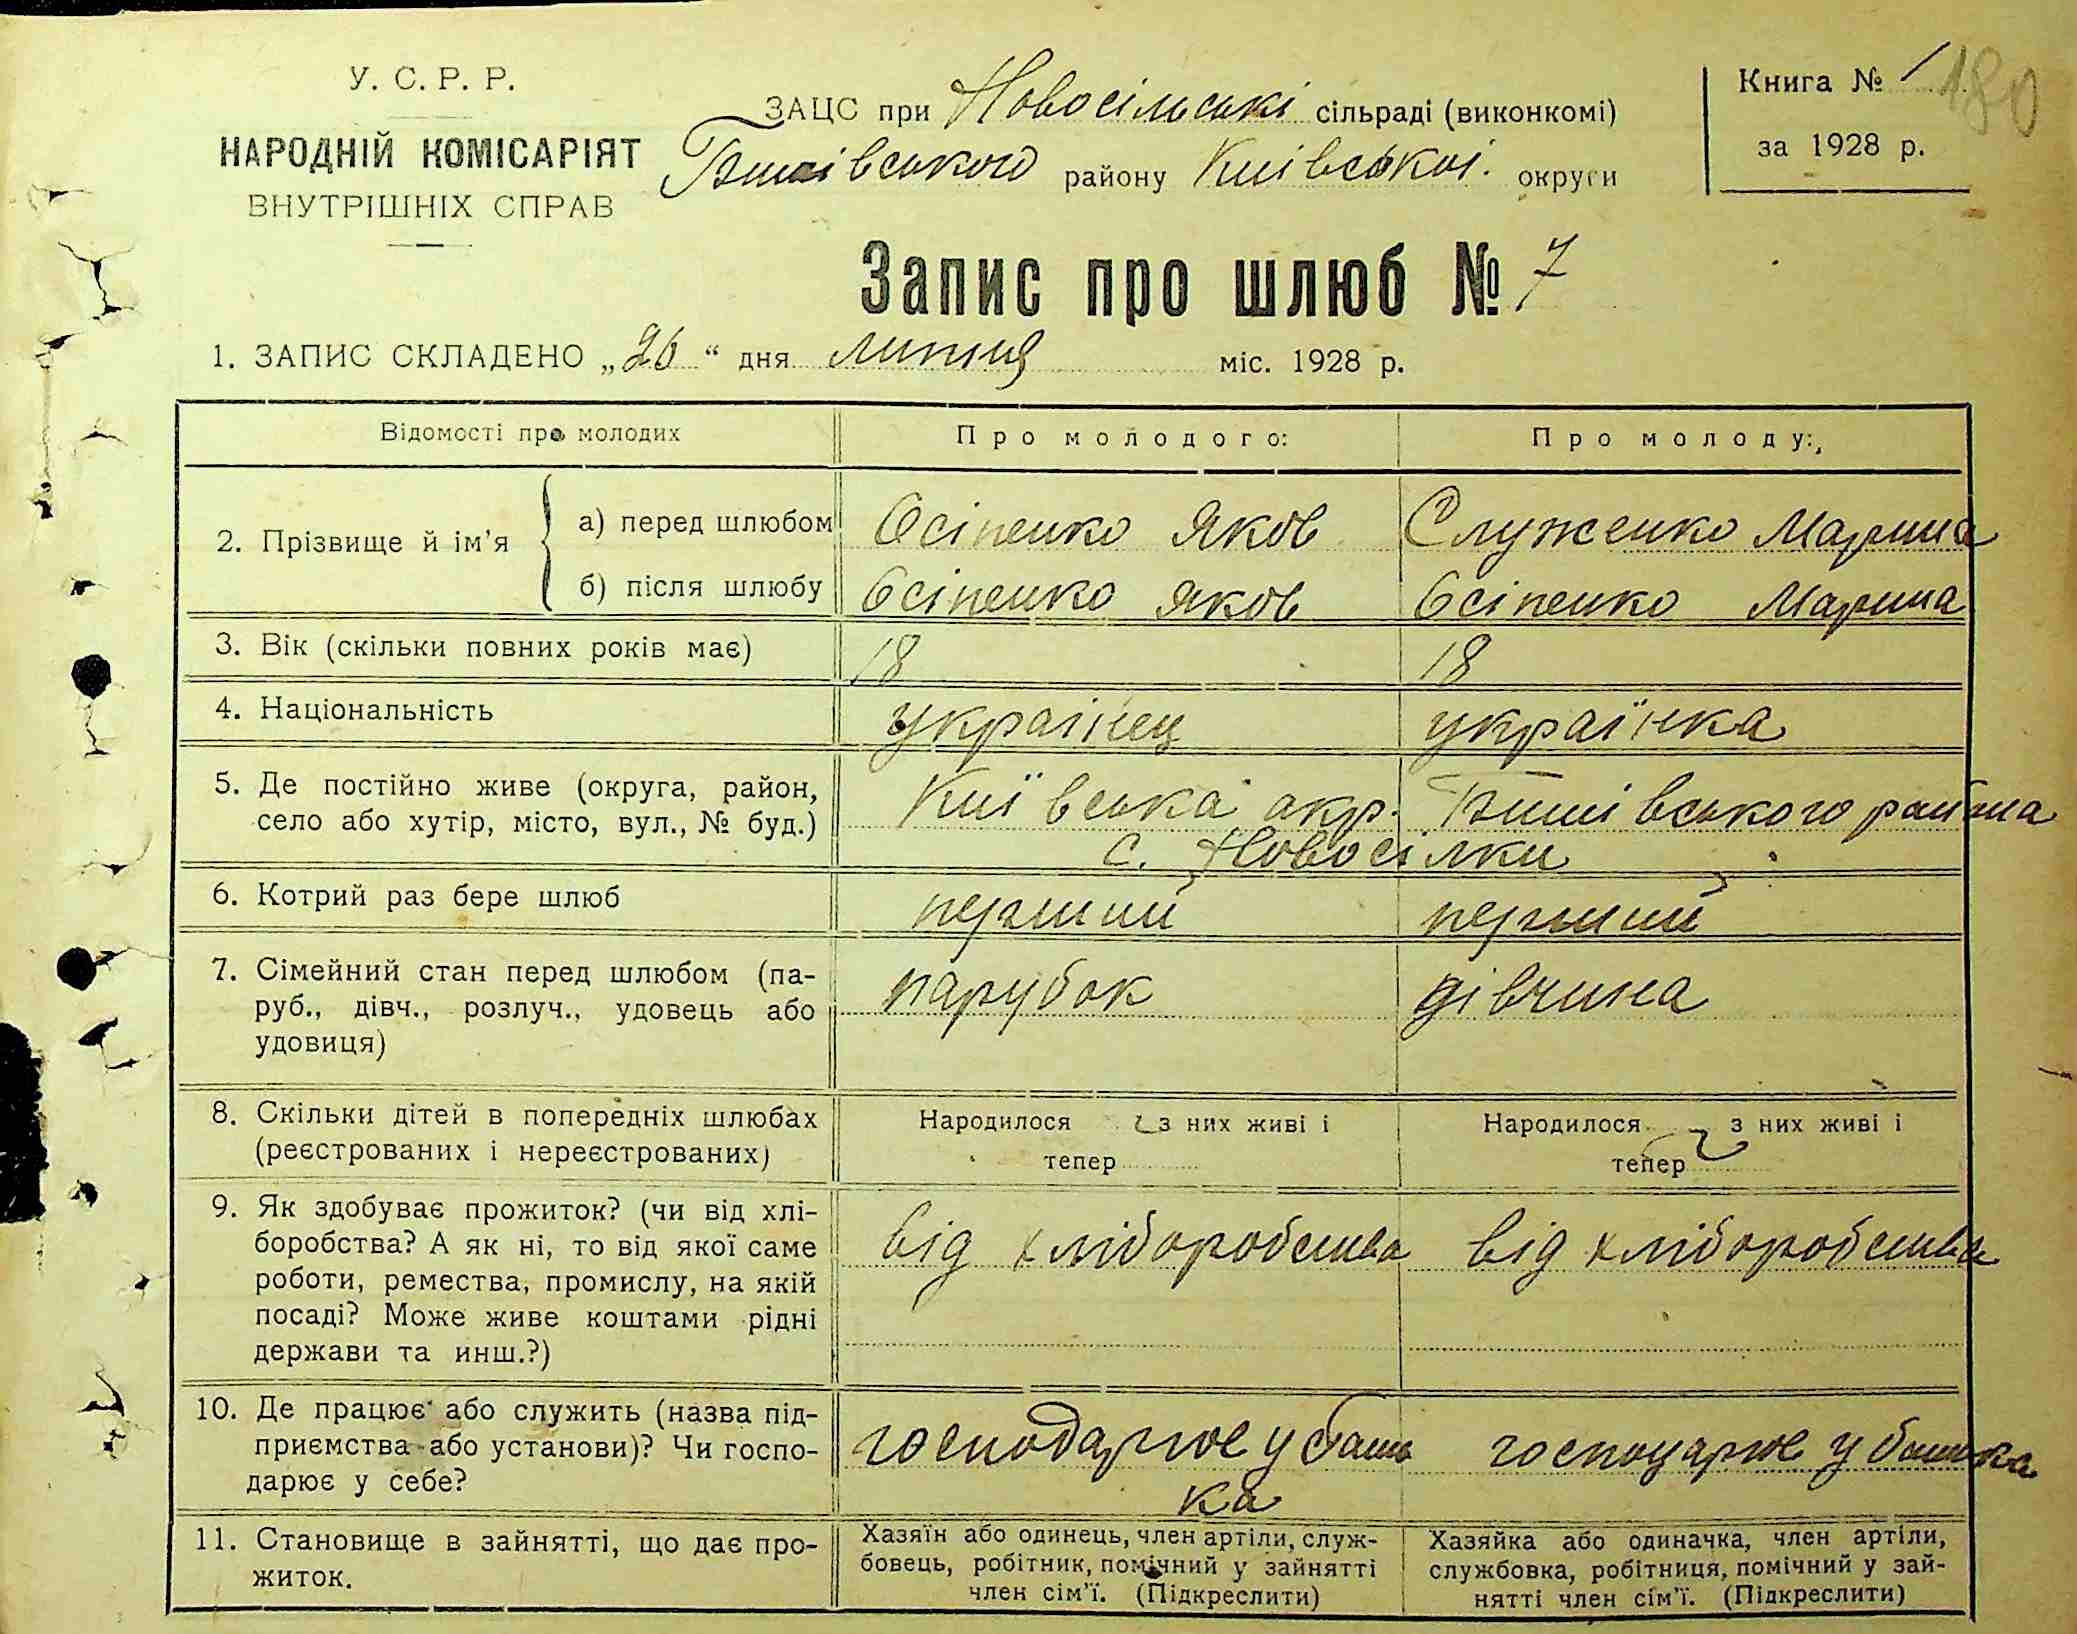 У. С. Р. Р.
НАРОДНІЙ КОМІСАРІЯТ
ВНУТРІШНІХ СПРАВ
ЗАЦС при Новосільські сільраді (виконкомі)
району Київської округи
Книга № 1
180
за 1928 р.
Запис про шлюб № 7
1. ЗАПИС СКЛАДЕНО „26“ дня липня міс. 1928 р.
Відомості про молодих
Про молодого:
Про молоду:
2. Прізвище й ім’я
а) перед шлюбом
Осіпенко Яков
Служенко Марина
б) після шлюбу
Осіпенко Яков
Осіпенко Марина
3. Вік (скільки повних років має)
18
18
4. Національність
українец
українка
5. Де постійно живе (округа, район,
село або хутір, місто, вул., № буд.)
Київська окр. района
с. Новосілки
6. Котрий раз бере шлюб
перший
перший
7. Сімейний стан перед шлюбом (па-
руб., дівч., розлуч., удовець або
удовиця)
парубок
дівчина
8. Скільки дітей в попередніх шлюбах
(реєстрованих і нереєстрованих)
Народилося з них живі і
тепер
Народилося з них живі і
тепер
9. Як здобуває прожиток? (чи від хлі-
боробства? А як ні, то від якої саме
роботи, ремества, промислу, на якій
посаді? Може живе коштами рідні
держави та инш.?)
від хліборобства
від хліборобства
10. Де працює або служить (назва під-
приємства або установи)? Чи госпо-
дарює у себе?
господарює у бать
ка
господарює у батька
11. Становище в зайнятті, що дає про-
житок.
Хазяїн або одинець, член артіли, служ-
бовець, робітник, помічний у зайнятті
член сім’ї. (Підкреслити)
Хазяйка або одиначка, член артіли,
службовка, робітниця, помічний у зай-
нятті член сім’ї. (Підкреслити)